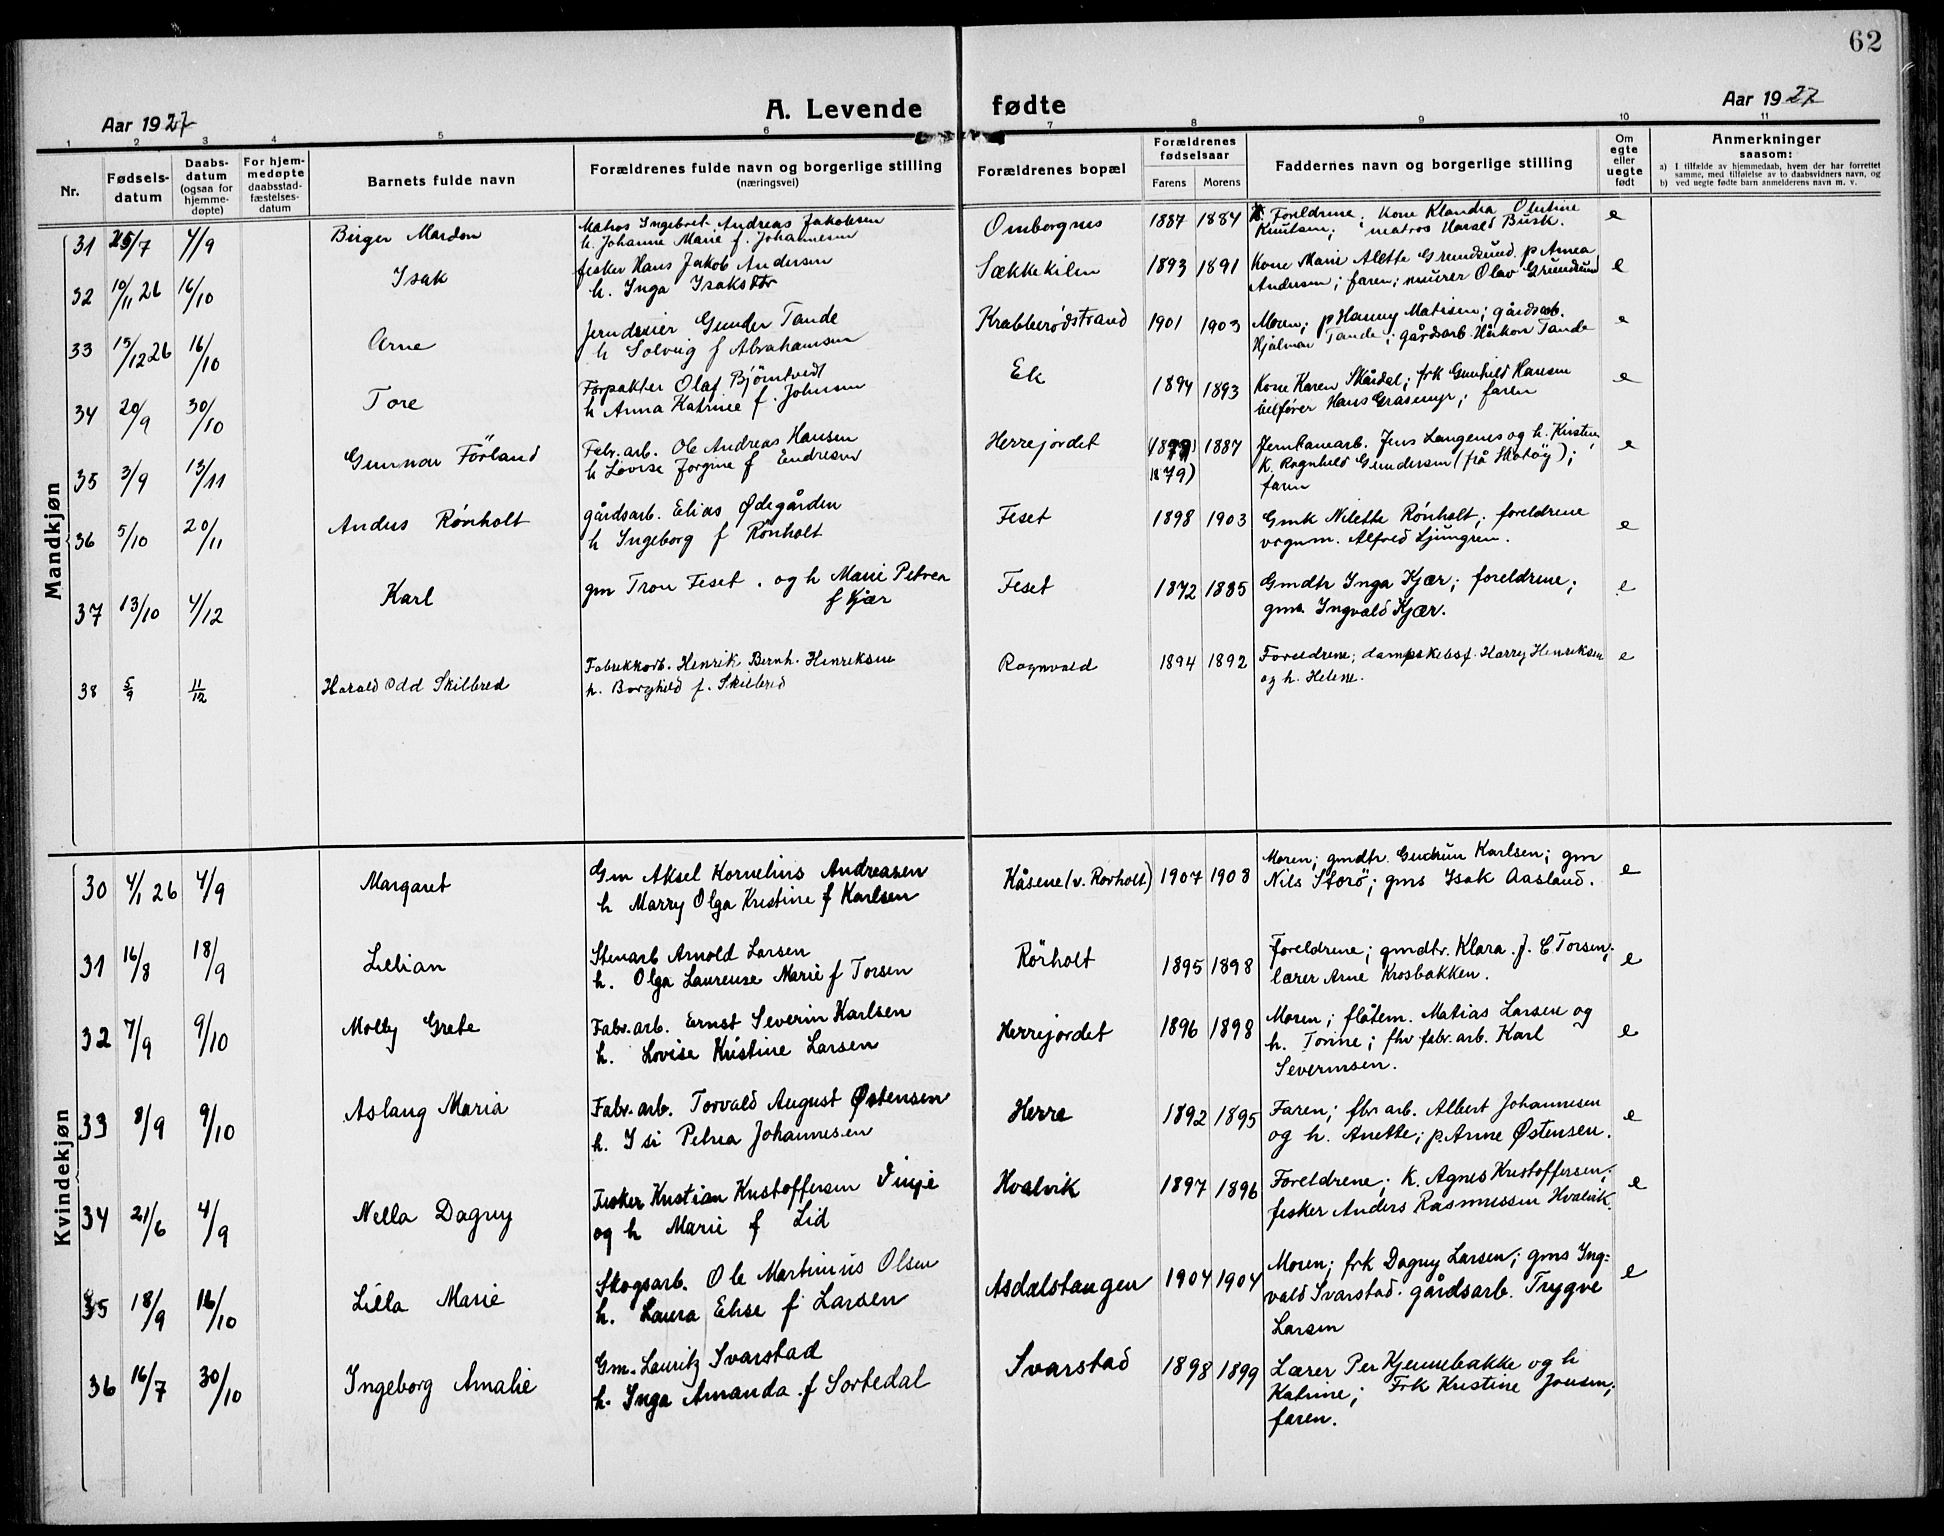 62
Aar 1927
A. Levende fødte
Aar 1927
1 2 3 4 5 6 7 8 9 10 11
Nr.
Fødsels-
datum
Daabs-
datum
(ogsaa for
hjemme-
døpte)
For hjem-
medøpte
daabsstad-
fæstelses-
datum
Barnets fulde navn
Forældrenes fulde navn og borgerlige stilling
(næringsvei)
Forældrenes bopæl
Forældrenes
fødselsaar
Farens Morens
Faddernes navn og borgerlige stilling
Om
egte
eller
uegte
født
Anmerkninger
saasom:
a) I tilfælde av hjemmedaab, hvem der har forrettet
samme, med tilføielse av to daabsvidners navn, og
b) ved uegte fødte barn anmelderens navn m. v.
Mandkjøn
31 25/7 4/9 Birger Mardon
Matros Ingebret Andreas Jakobsen
h. Johanne Marie f. Johannesen
Ombergnes 1887 1884
Foreldrene; Kone Klandra Olestine
Knutsen; matros Harald Busk.
e
32 10/11 26 16/10 Isak
fisker Hans Jakob Andersen
h. Inga Isaksdtr
Sækkekilen 1893 1891
Kone Marie Alette Grundsund p Anna
Andersen; faren; murer Olav Grundsund
e
33 15/12 26 16/10 Arne
Jerndreier Gunder Tande
h Solveig f Abrahamsen
Krabberødstrand 1901 1903
Moren; p Hanny Matisen; gårdsarb.
Hjalmar Tande; gårdsarb. Håkon Tande
e
34 20/9 30/10 Tore
Forpakter Olaf Bjömtvedt
h Anna Katrine f. Johnsen
Ek 1894 1893
Kone Karen Skårdal; frk Gunhild Hansen
bilfører Hans Grasmyr; faren
e
35 3/9 13/11 Gunnar Förland
Fabr. arb. Ole Andreas Hansen
h Lovise Jorgine f Endresen
Herrejordet 1879) 1887
1879)
Jernbanearb. Jens Langenes og h. Kirstine
K. Ragnhild Gundersen (frå Skotøy);
faren
e
36 5/10 20/11 Anders Rönholt
gårdsarb. Elias Ødegården
h Ingeborg f Rönholt
Feset 1898 1903
Gmk Nilette Rönholt; foreldrene
vognm. Alfred Ljungren.
e
37 13/10 4/12 Karl
gm Tron Feset. og h Marie Petrea
f Kjær
Feset 1872 1885
Gmdtr Inga Kjær; foreldrene;
gms Ingvald Kjær.
e
38 5/9 11/12 Harald Odd Skilbred
Fabrikkarb. Henrik Bernh. Henriksen
h. Borghild f. Skilbred
Rognvald 1894 1892
Foreldrene; dampskibsf. Harry Henriksen
og h. Helene.
e
Kvindekjøn
30 4/1 26 4/9 Margaret
Gm Aksel Kornelius Andreasen
h Marry Olga Kristine f Karlsen
Kåsene (v. Rorholt) 1907 1908
Moren; gmdtr. Gudrun Karlsen; gm
Nils Storö; gms Isak Aasland.
e
31 16/8 18/9 Lillian
Stenarb Arnold Larsen
h. Olga Laurense Marie f Torsen
Rörholt 1895 1898
Foreldrene; gmdtr. Klara J. C Torsen;
lærer Arne Krosbakken.
e
32 7/9 9/10 Molly Grete
Fabr. arb. Ernst Severin Karlsen
h. Lovise Kristine Larsen
Herrejordet 1896 1898
Moren; flåtem. Matias Larsen og
h. Torine; fhv fabr. arb. Karl
Severinsen.
e
33 8/9 9/10 Aslaug Maria
Fabr. arb. Torvald August Østensen
h. Isi Petrea Johannesen
Herre 1892 1895
Faren; fbr arb. Albert Johannesen
og h. Anette; p Anne Østensen.
e
34 21/6 4/9 Nella Dagny
Fisker Kristian Kristoffersen Vinje
og h Marie f Lid
Hvalvik 1897 1896
Foreldrene; K. Agnes Kristoffersen;
fisker Anders Rasmussen Hvalvik.
e
35 18/9 16/10 Lilla Marie
Skogsarb. Ole Martinius Olsen
h. Laura Elise f Larsen
Asdalstangen 1904 1904
Moren; frk Dagny Larsen; gms Ing=
vald Svarstad. gårdsarb. Trygve
Larsen
e
36 16/7 30/10 Ingeborg Amalie
Gm. Lauritz Svarstad
h. Inga Amanda f Sortedal
Svarstad 1898 1899
Lærer Per Kjennebakke og h
Katrine; Frk Kristine Jonsen;
faren.